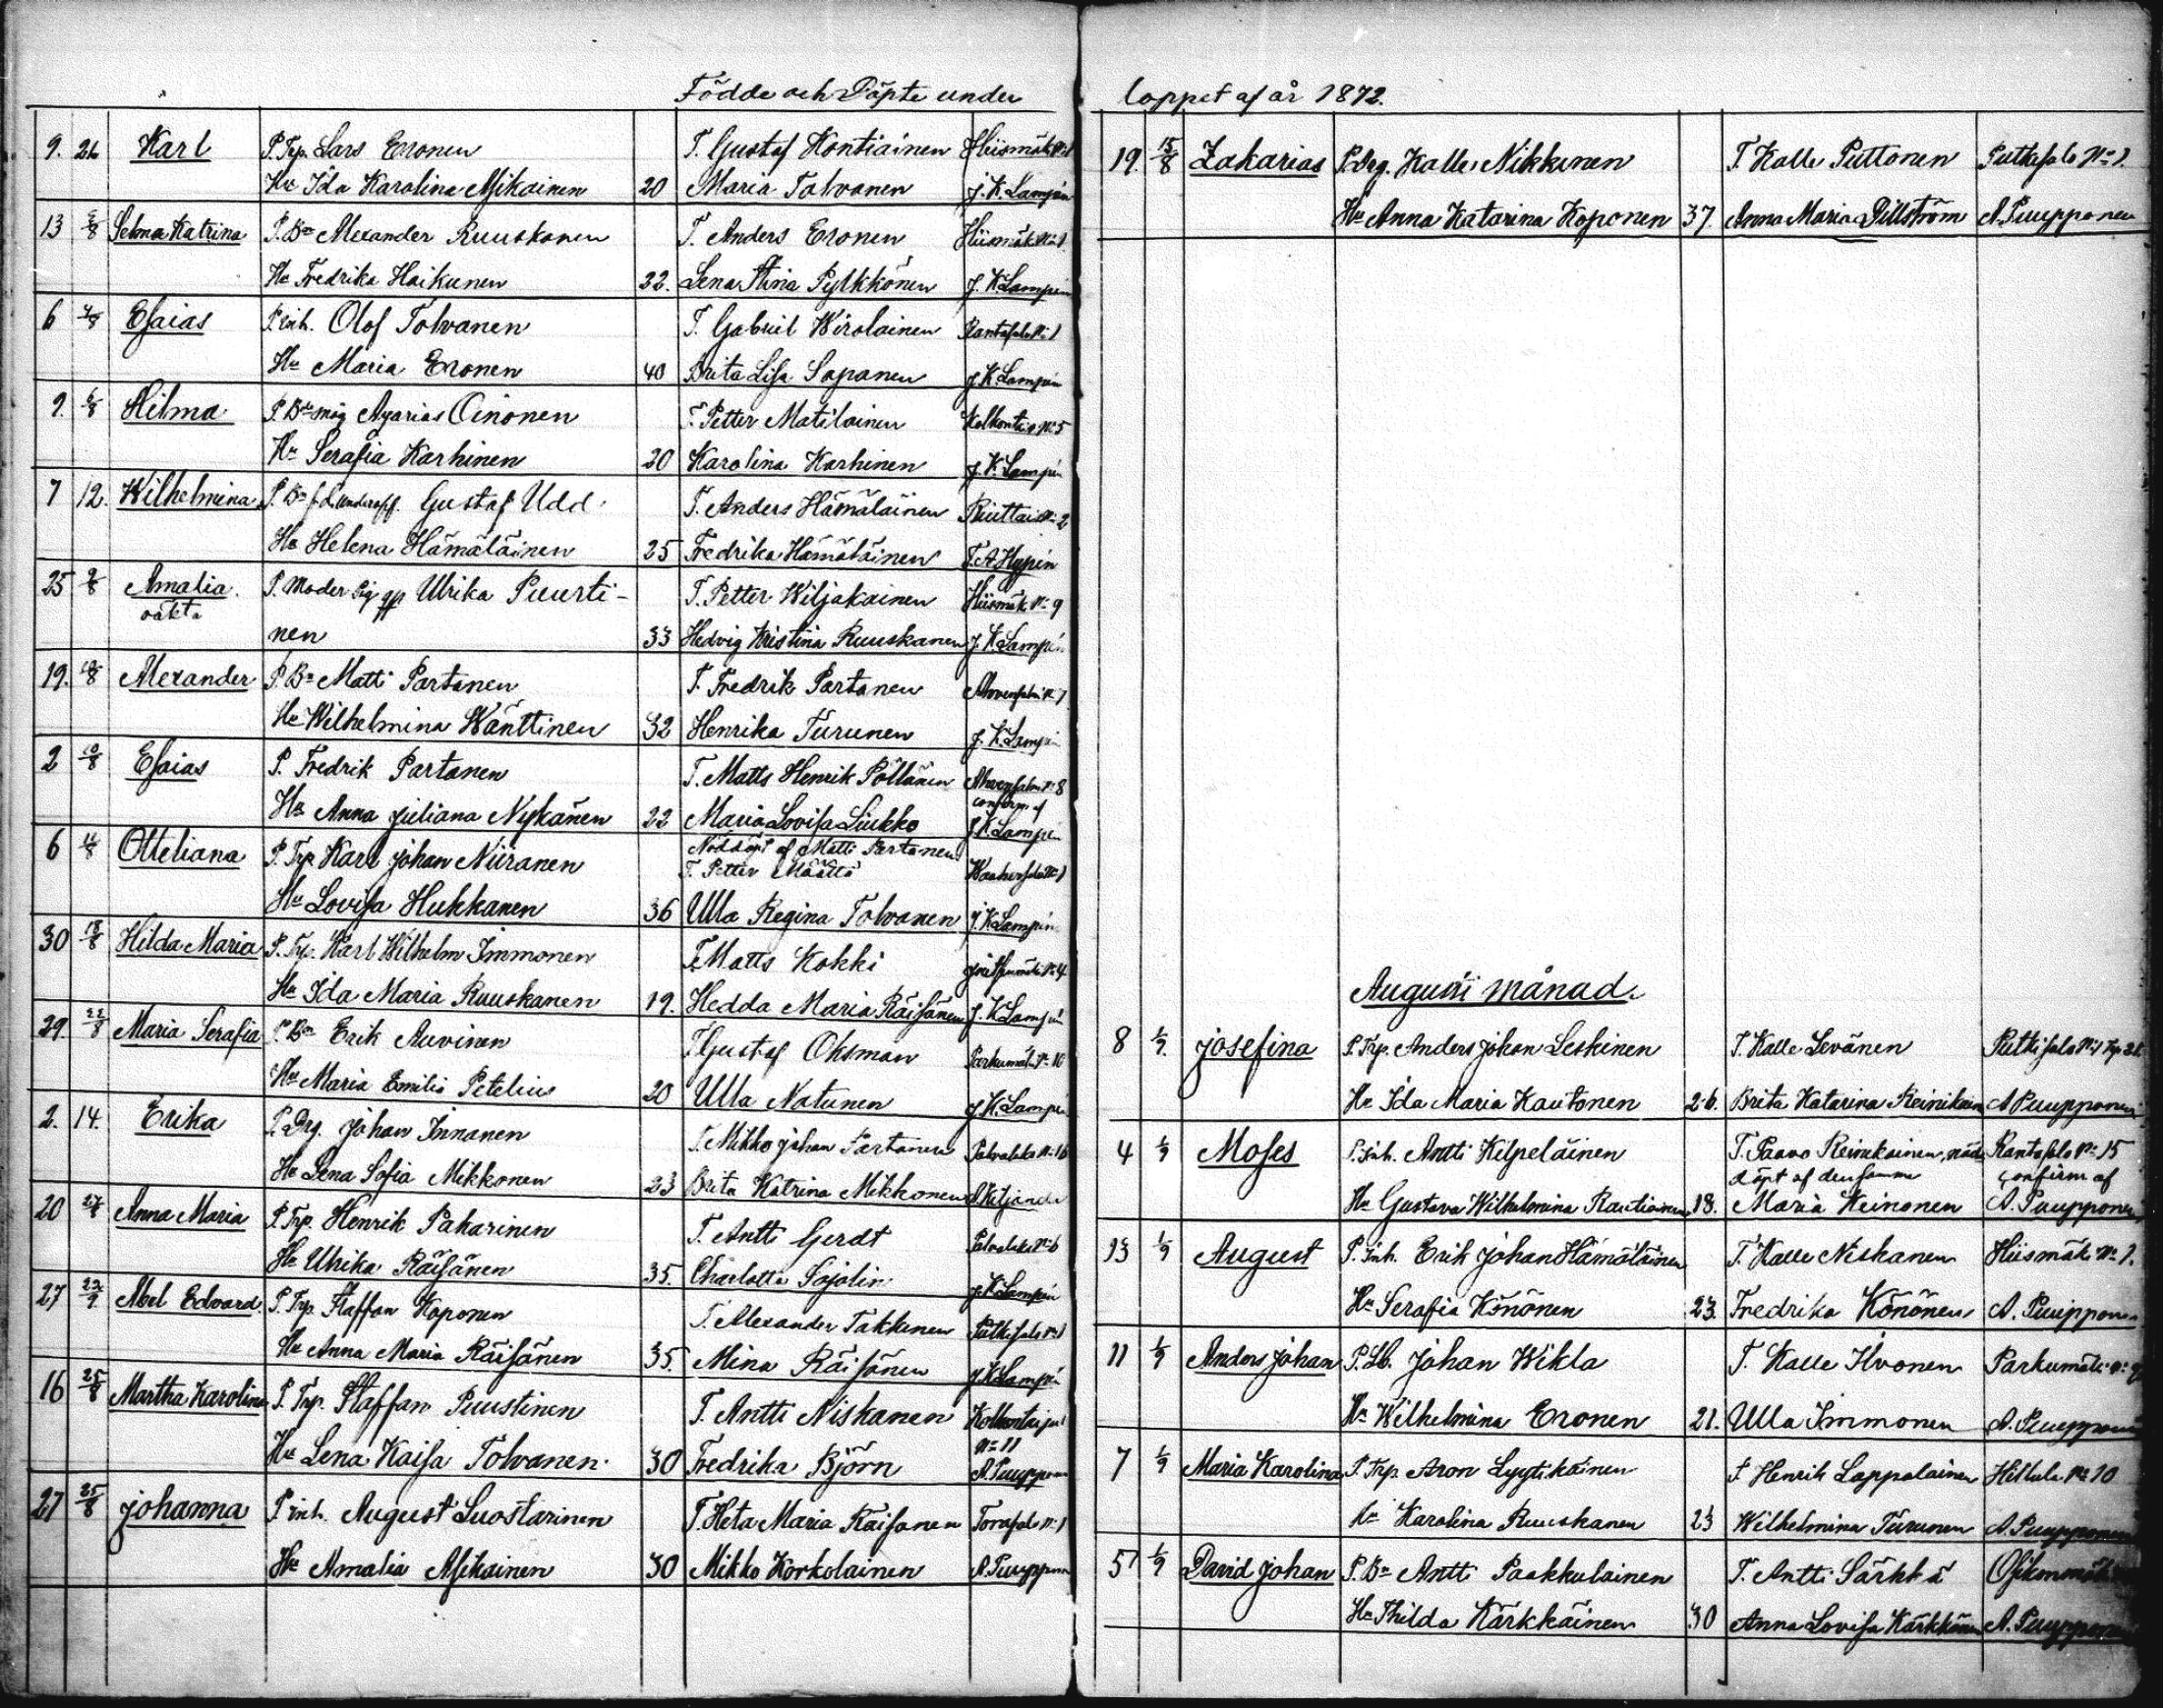 Födde och Döpte under
9. 26 Karl P. Trp. Lars Eronen T. Gustaf Kontiainen Hiismäk No 1
Hu Ida Karolina Asikainen 20 Maria Tolvanen J. K. Lampén
13 Selma Katrina P. Bn Alexander Ruuskanen T. Anders Eronen Hiismäk No 1
Hu Fredrika Haikunen 22. Lena Stina Pylkkönen J. K. Lampén
6 Esaias P. inh. Olof Tolvanen T. Gabriel Wirolainen Rantasalo No 1
Hu Maria Eronen 40 Brita Lisa Sapanen J. K. Lampén
9. 6/8 Hilma P. Bde måg Asarias Oinonen T. Petter Matilainen No 5
Hu Serafia Karhinen 20 Karolina Karhinen J. K. Lampén
7 12. Wilhelmina P. Bn Gustaf Udd T. Anders Hämäläinen No 2
Hu Helena Hämäläinen 25 Fredrika Hämäläinen
25 9/8 Amalia P. Moder Pig Ulrika Puurti- T. Petter Wiljakainen Hiismäk No 9
oäkta
nen 33 Hedvig Kristina Ruuskanen J. K. Lampén
19. Alexander P. Bn Matti Partanen T. Fredrik Partanen
Hu Wilhelmina Wänttinen 32 Henrika Turunen J. K. Lampén
2 10/8 Esaias P. Fredrik Partanen T. Matts Henrik Pöllänen No 8
confirm. af
Hu Anna Juliana Nykänen 22 Maria Lovisa Liukko J. K. Lampén
Nöddöpt af Matti Partanen
6 Otteliana P. Trp Karl Johan Niiranen T. Petter Määttä
Hu Lovisa Hukkanen 36 Ulla Regina Tolvanen J. K. Lampén
30 18/8 Hilda Maria P. Trp. Karl Wilhelm Immonen T. Matts Kokki No 4
Hu Ida Maria Ruuskanen 19. Hedda Maria Räisänen J. K. Lampén
29. 22/8 Maria Serafia P. Bn Erik Auvinen T. Gustaf Ohsman Parkumäk No 10
Hu Maria Emilia Petelius 20 Ulla Natunen J. K. Lampén
2. 14. Erika P. Drg. Johan Innanen T. Mikko Johan Partanen No 16
Hu Lena Sofia Mikkonen 23 Brita Katrina Mikkonen
20 Anna Maria P. Trp. Henrik Pakarinen T. Antti Gerdt No 6
Hu Ulrika Räisänen 35. Charlotta Sajolin J. K. Lampén
27 22/9 Abel Edvard P. Trp. Staffan Koponen T. Alexander Takkunen Putkisalo No 1
Hu Anna Maria Räisänen 35. Mina Räisänen J. K. Lampén
16 25/8 Martha Karolina P. Trp. Staffan Puustinen T. Antti Niskanen
No 11
Hu Lena Kaisa Tolvanen 30 Fredrika Björn A. Puupponen
27 25/8 Johanna P. inh. August Luostarinen T. Heta Maria Räisänen No 1
Hu Amalia Asikainen 30 Mikko Korkolainen A. Puupponen
loppet af år 1872.
19. 15/8 Zakarias P. Drg. Kalle Nikkunen T. Kalle Puttonen Putkisalo No 1.
Hu Anna Katarina Koponen 37. Anna Maria Dillström A. Puupponen
Augusti månad.
8 1/9. Josefina P. Trp. Anders Johan Leskinen T. Kalle Levänen Putkisalo No 1
Hu Ida Maria Kautonen 26. Brita Katarina Reinikainen A. Puupponen
4 1/9 Moses P. inh. Antti Kilpeläinen T. Paavo Reinikainen, nöd- Rantasalo No 15
döpt af densamme confirm af
Hu Gustava Wilhelmina Rautiainen 18. Maria Keinonen A. Puupponen
13 1/9 August P. inh. Erik Johan Hämäläinen T. Kalle Niskanen Hiismäk No 1.
Hu Serafia Könönen 23. Fredrika Könönen A. Puupponen
11 1/9 Anders Johan P. Lb. Johan Wikla T. Kalle Ilvonen Parkumäki
Hu Wilhelmina Eronen 21. Ulla Immonen A. Puupponen
7 1/9 Maria Karolina P. Trp. Aron Lyytikäinen T. Henrik Lappalainen No 10
Hu Karolina Ruuskanen 23 Wilhelmina Turunen A. Puupponen
5 1/9 David Johan P. Bn Antti Paakkulainen T. Antti Särkkä
Hu Thilda Kärkkäinen 30 Anna Lovisa Kärkkäinen A. Puupponen